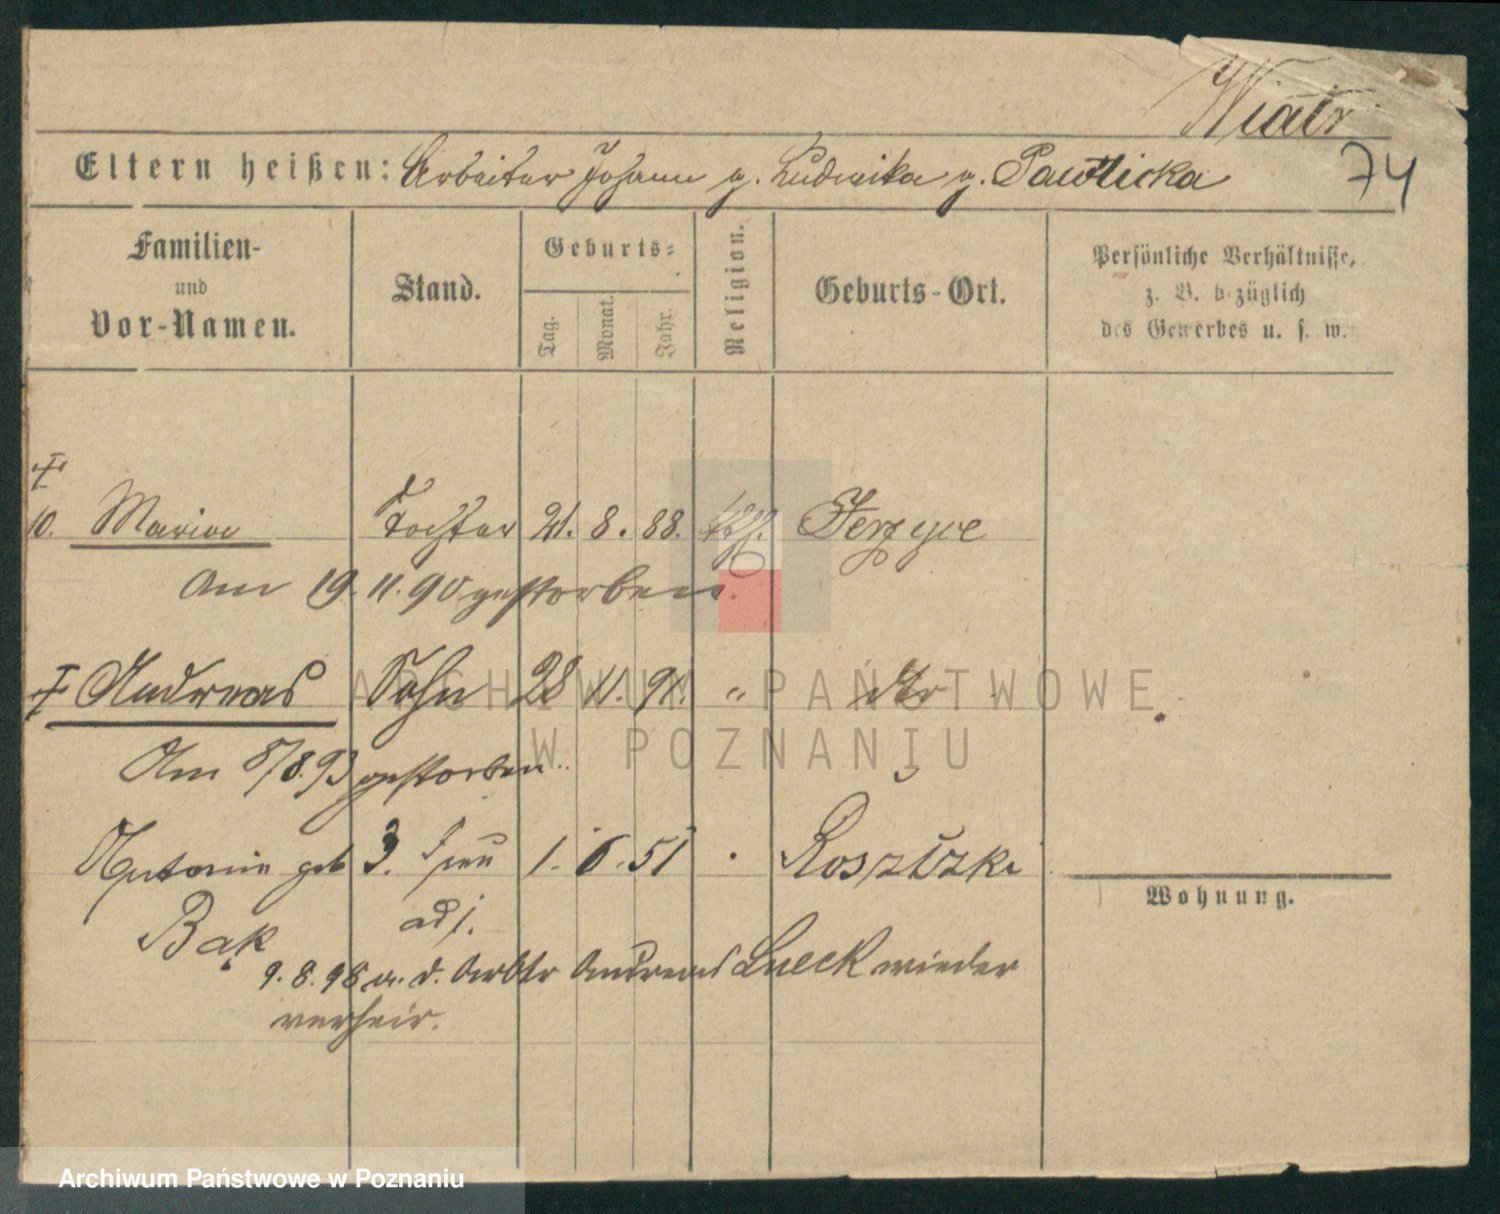 Wiatr
74
Eltern heißen: Arbeiter Johann g. Ludwika g. Pawlicka
Familien- und Vor-Namen.
Stand.
Geburts-
Tag.
Monat.
Jahr.
Religion.
Geburts-Ort.
Persönliche Verhältnisse,
z. B. bezüglich
des Gewerbes u. s. w.
10. Marie Tochter 21. 8. 88. kth. Jerzyce
Am 19. 11. 90 gestorben.
Andreas Sohn 28 11. 91. " dto
Am 8/8.93 gestorben.
Antonie geb 3. Frau 1. 6. 51
Bąk
adj.
9. 8. 98 m. d. Arbtr Andreas Lueck wieder
verheir.
Wohnung.
ARCHIWUM PAŃSTWOWE
W POZNANIU
Archiwum Państwowe w Poznaniu